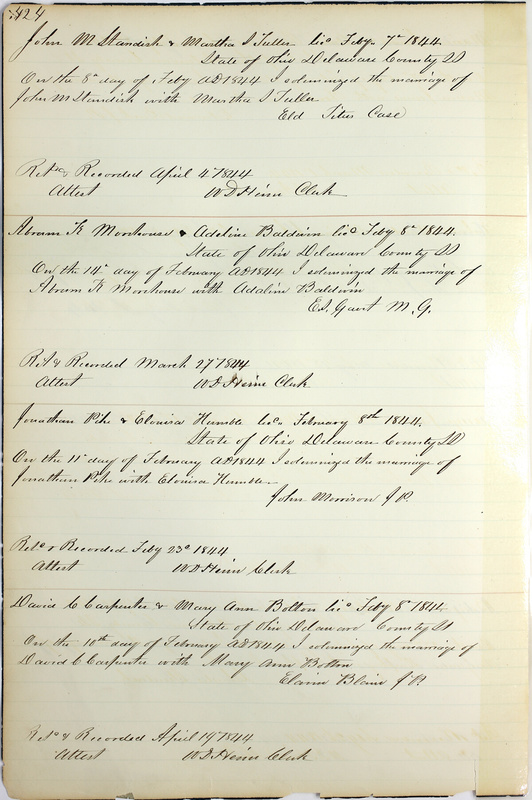 424
John M Standish & Martha I Fuller lic Feby 7th 1844
State of Ohio Delaware County SS
On the 8th day of Feby AD 1844 I solemnized the marriage of
John M Standish with Martha I Fuller
Eld Titus Case
Retd & Recorded April 4 1844
Attest W D Heim Clerk
Abram K Morehouse & Adaline Baldwin licd Feby 8th 1844
State of Ohio Delaware County SS
On the 14th day of February AD 1844 I solemnized the marriage of
Abram K Morehouse with Adaline Baldwin
Ed. Gavit M.G.
Retd & Recorded March 27 1844
Attest W D Heim Clerk
Jonathan Pike & Elouisa Humble licd February 8th 1844
State of Ohio Delaware County SS
On the 11th day of February AD 1844 I solemnized the marriage of
Jonathan Pike with Elouisa Humble
John Morrison J P.
Retd & Recorded Feby 23d 1844
Attest W D Heim Clerk
David C Carpenter & Mary Ann Bolton licd Feby 8th 1844
State of Ohio Delaware County SS
On the 10th day of February AD 1844 I solemnized the marriage of
David C Carpenter with Mary Ann Bolton
Blair J P.
Retd & Recorded April 19 1844
Attest W D Heim Clerk